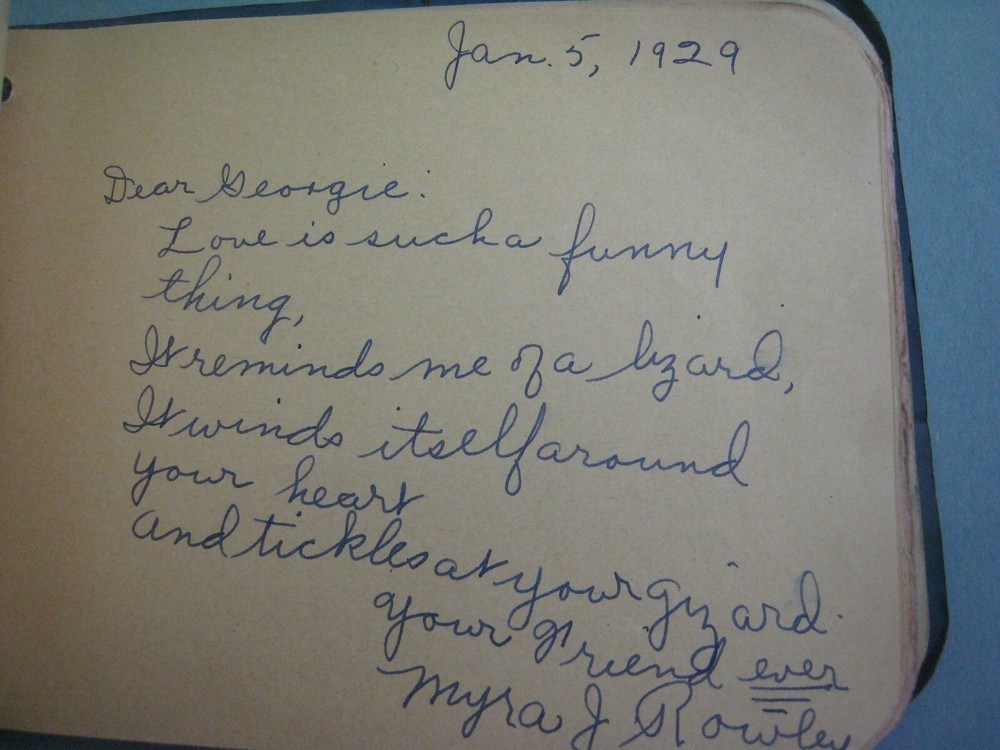 Jan. 5, 1929
Dear Georgie:
Love is such a funny
thing,
It reminds me of a lizard,
It winds itself around
your heart
and tickles at your gizard.
Your Friend ever
Myra J Rowley